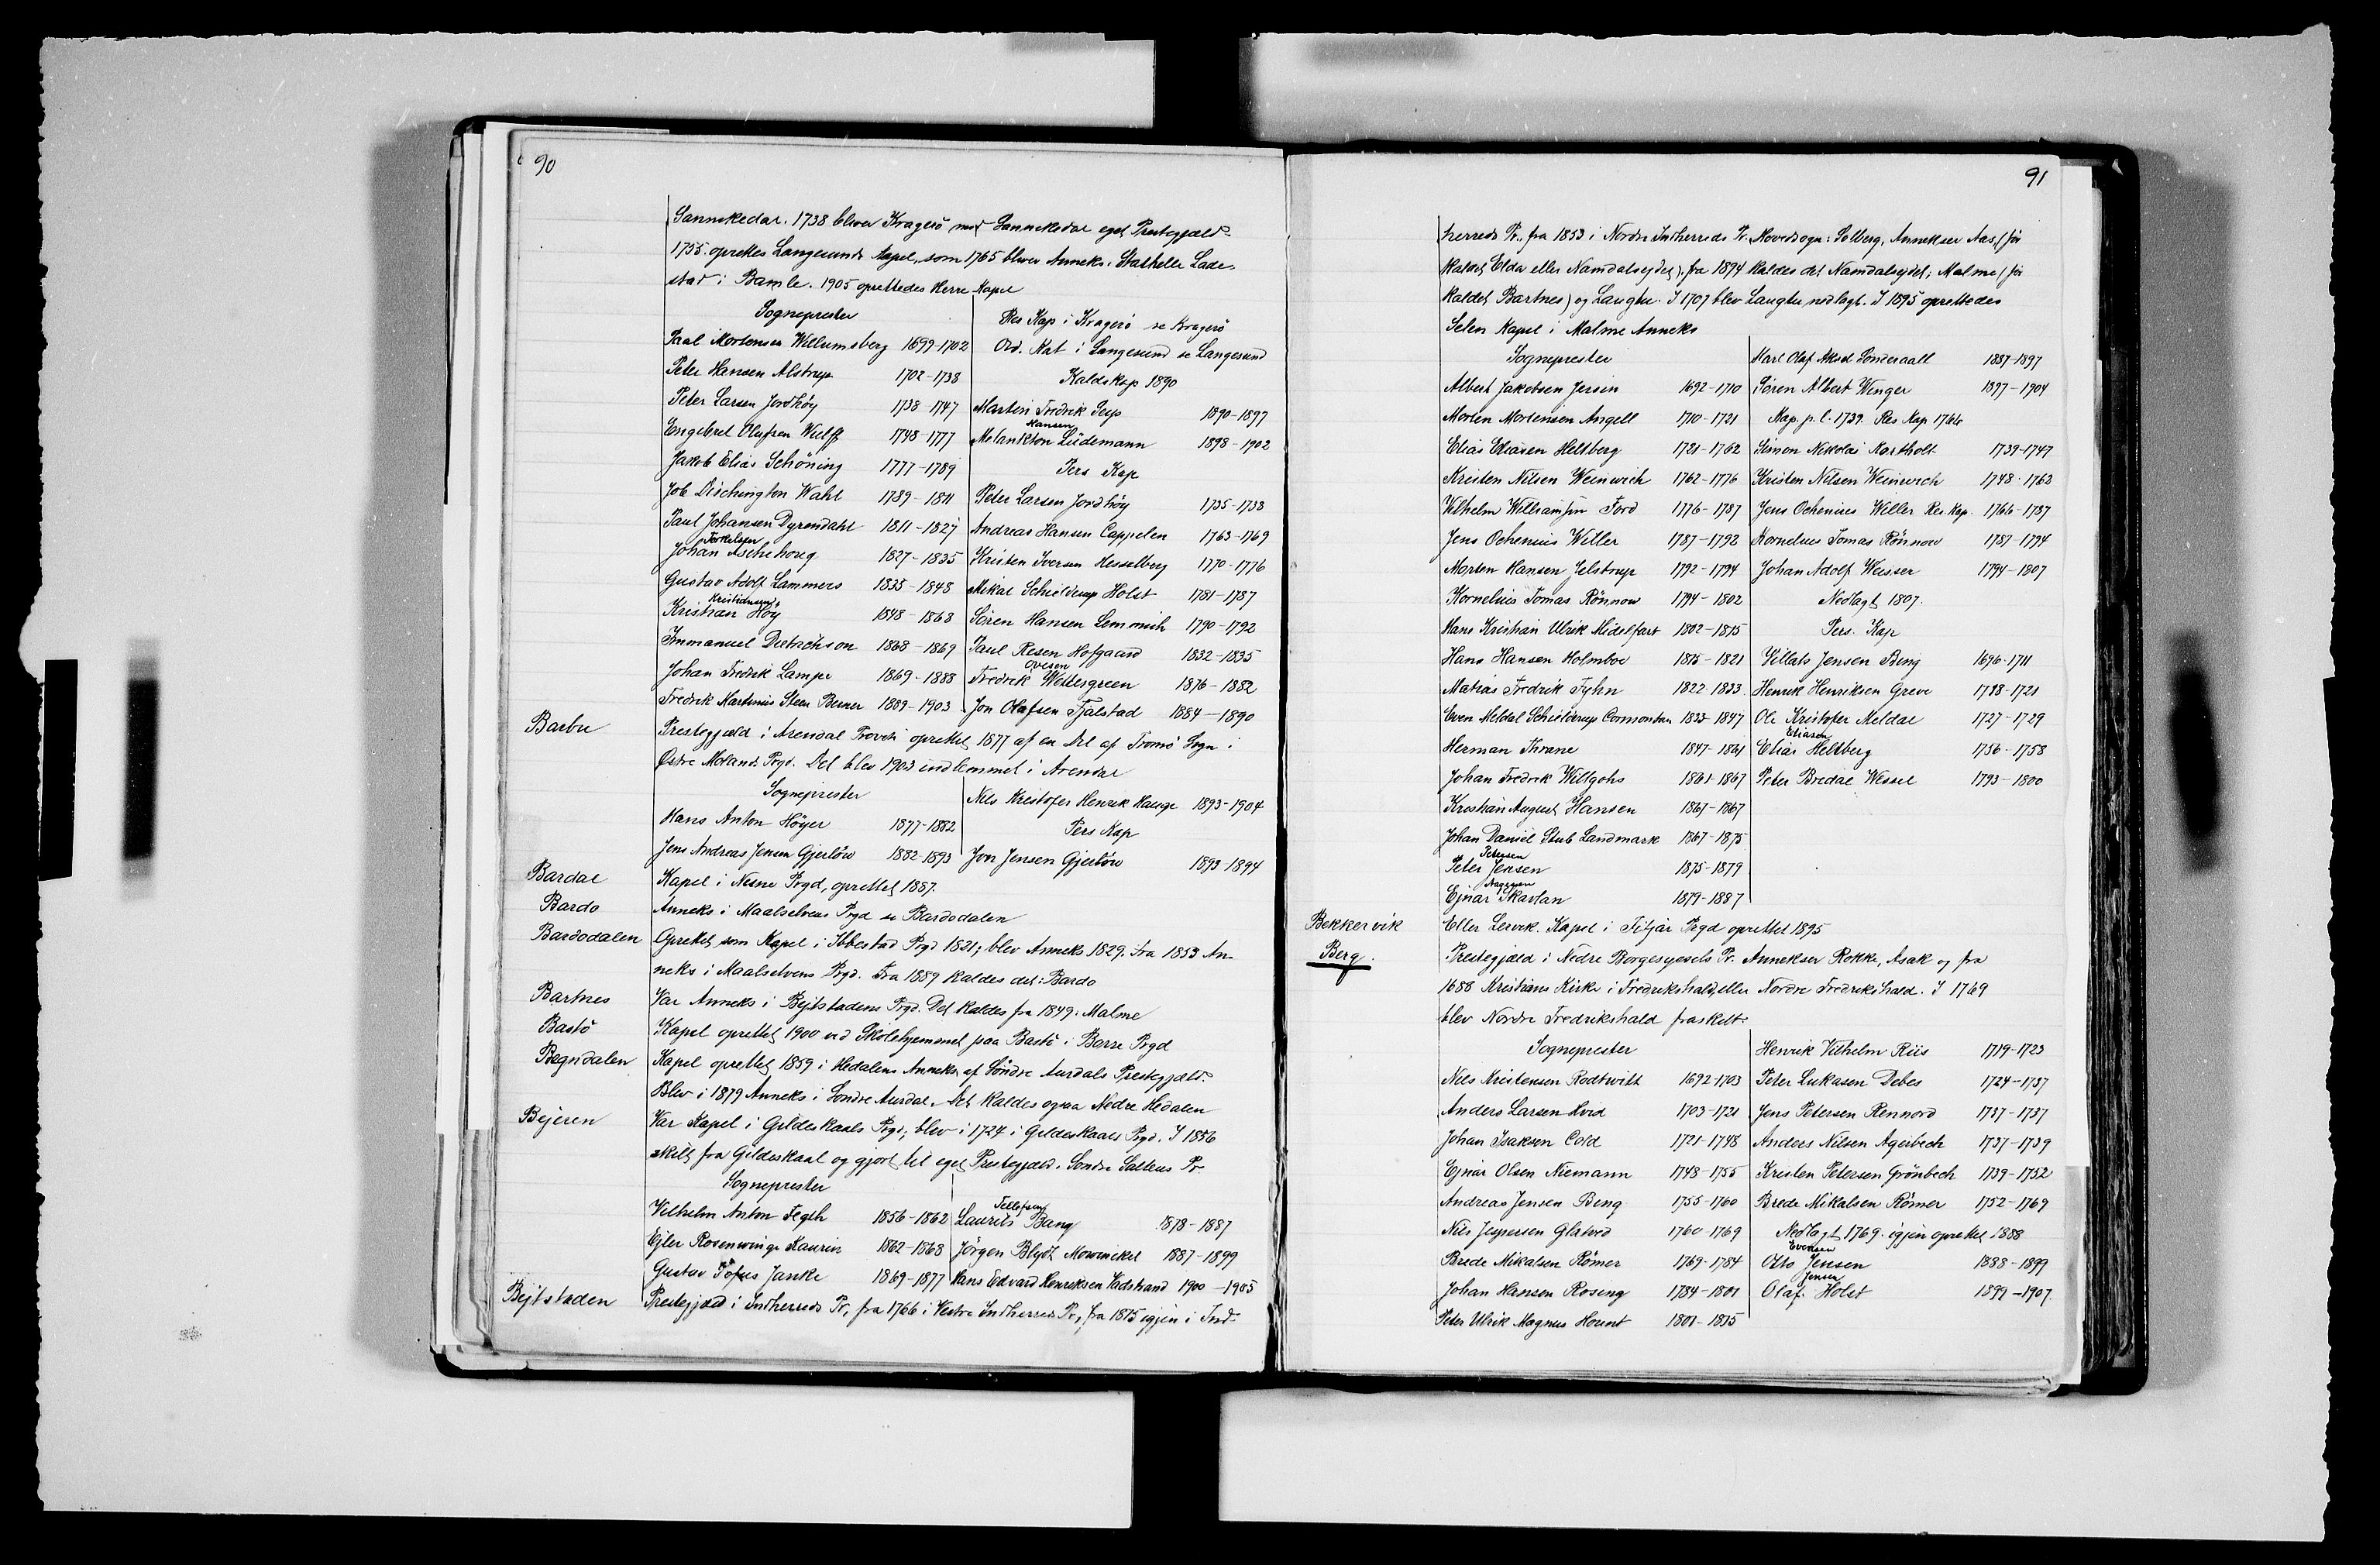 90
Sannikedal. 1738 bliver Kragerö med Sannikedal eget Prestegjæld.
1755 oprettes Langesunds Kapel, som 1765 bliver Anneks. Stathelle Lade-
sted i Bamle. 1905 oprettedes Herre Kapel
Sogneprester
Res Kap i Kragerö se Kragerö
Paal Mortensen Willumsberg 1699-1702
Ord. Kat i Langesund se Langesund
Peter Hansen Alstrup 1702-1738
Kaldskap 1890
Peter Larsen Jordhöy 1738-1747
Martin Fredrik Seip 1890-1897
Engebret Olufsen Wulff 1748-1777
Melankton Hansen Lüdemann 1898-1902
Jakob Elias Schöning 1777-1789
Pers Kap
Job Dischington Wahl 1789-1811
Peter Larsen Jordhöy 1735-1738
Paul Johansen Dyrendahl 1811-1827
Andreas Hansen Cappelen 1763-1769
Johan Torkelsen Aschehoug 1827-1835
Kristen Iversen Hesselberg 1770-1776
Gustav Adolf Lammers 1835-1848
Mikal Schielderup Holst 1781-1787
Kristian Kristiansen Höy 1848-1868
Sören Hansen Lemmich 1790-1792
Immanuel Dietrichson 1868-1869
Paul Resen Hofgaard 1832-1835
Johan Fredrik Lampe 1869-1888
Fredrik Ovesen Wettergreen 1876-1882
Fredrik Martinius Steen Berner 1889-1903
Jon Olafsen Fjalstad 1884-1890
Barbu
Prestegjæld i Arendal Provsti oprettet 1877 af en Del af Tromö Sogn i
Østre Moland Prgd. Det blev 1903 indlemmet i Arendal
Sogneprester
Nils Kristofer Henrik Hauge 1893-1904
Hans Anton Höyer 1877-1882
Pers Kap
Jens Andreas Jensen Gjerlöw 1882-1893
Jon Jensen Gjerlöw 1893-1894
Bardal
Kapel i Nesne Prgd, oprettet 1887.
Bardo
Anneks i Maalselvens Prgd se Bardodalen
Bardodalen
Oprettet som Kapel i Ibbestad Prgd 1821; blev Anneks 1829. Fra 1853 An-
neks i Maalselvens Prgd. Fra 1889 kaldes det: Bardo
Bartnes
Var Anneks i Bejtstadens Prgd. Det kaldes fra 1849: Malme
Bastö
Kapel oprettet 1900 ved Skolehjemmet paa Bastö i Borre Prgd
Begndalen
Kapel oprettet 1859 i Hedalens Anneks af Söndre Aurdals Prestegjæld.
Blev i 1879 Anneks i Söndre Aurdal. Det kaldes ogsaa Nedre Hedalen
Bejeren
Var Kapel i Gildeskaals Prgd; blev i 1724 i Gildeskaals Prgd. I 1856
skilt fra Gildeskaal og gjort til eget Prestegjæld. Söndre Saltens Pr.
Sogneprester
Vilhelm Anton Fegth 1856-1862
Laurits Tellefsen Bang 1878-1887
Ejler Rosenvinge Kaurin 1862-1868
Jörgen Blydt Mowinckel 1887-1899
Gustav Töfus Janke 1869-1877
Hans Edvard Henriksen Vadstrand 1900-1905
Bejtstaden
Prestegjæld i Indherreds Pr, fra 1766 i Vestre Indherreds Pr, fra 1815 igjen i Ind-
91
herreds Pr., fra 1853 i Nordre Indherreds Pr. Hovedsogn: Solberg, Annekser Aas, (för
kaldet Elda eller Namdalsejdet), fra 1894 kaldes det Namdalsejdet; Malme (för
kaldet Bartnes) og Laugtu. I 1707 blev Laugtu nedlagt. I 1895 oprettedes
Selen Kapel i Malme Anneks
Sogneprester
Karl Olaf Aksel Sonderaall 1887-1897
Albert Jakobsen Jersin 1692-1710
Sören Albert Winger 1897-1904
Morten Mortensen Angell 1710-1721
Kap. p. l. 1739. Res Kap 1766
Elias Eliasen Heltberg 1721-1762
Simon Nikolai Kartholt 1739-1747
Kristen Nilsen Weinwich 1762-1776
Kristen Nilsen Weinwich 1748-1762
Vilhelm Williamsen Ford 1776-1787
Jens Ochenius Willer Res Kap. 1766-1787
Jens Ochenius Willer 1787-1792
Kornelius Tomas Rönnow 1787-1794
Morten Hansen Jelstrup 1792-1794
Johan Adolf Weisser 1794-1807
Kornelius Tomas Rönnow 1794-1802
Nedlagt 1807.
Hans Kristian Ulrik Midelfart 1802-1815
Pers. Kap
Hans Hansen Holmboe 1815-1821
Villats Jensen Bing 1696-1711
Matias Fredrik Tyhn 1822-1833
Henrik Henriksen Greve 1718-1721
Even Meldal Schielderup Cormontan 1833-1847
Ole Kristofer Meldal 1727-1729
Herman Thrane 1847-1861
Elias Eliasen Heltberg 1756-1758
Johan Fredrik Willgohs 1861-1867
Peter Bredal Wessel 1793-1800
Kristian August Hansen 1867-1867
Johan Daniel Stub Landmark 1867-1875
Peter Petersen Jensen 1875-1879
Ejnar Aagesen Skavlan 1879-1887
Bekkervik
Eller Lervik. Kapel i Fitjar Prgd oprettet 1895
Berg.
Prestegjæld i Nedre Borgesyssels Pr. Annekser Rokke, Asak og fra
1688 Kristians Kirke i Fredrikshald, eller Nordre Fredrikshald. I 1769
blev Nordre Fredrikshald fraskilt.
Sogneprester
Henrik Vilhelm Riis 1719-1723
Nils Kristensen Rodtwitt 1692-1703
Peter Lukasen Debes 1724-1737
Anders Larsen Hvid 1703-1721
Jens Petersen Rennord 1737-1737
Johan Isaksen Cold 1721-1748
Anders Nilsen Agerbech 1737-1739
Ejnar Olsen Niemann 1748-1755
Kristen Petersen Grönbech 1739-1752
Andreas Jensen Bing 1755-1760
Brede Mikalsen Römer 1752-1769
Nils Jespersen Glatved 1760-1769
Nedlagt 1769. igjen oprettet 1888
Brede Mikalsen Römer 1769-1784
Otto Evensen Jensen 1888-1899
Johan Hansen Rosing 1784-1801
Olaf Jensen Holst 1899-1907.
Peter Ulrik Magnus Hount 1801-1815